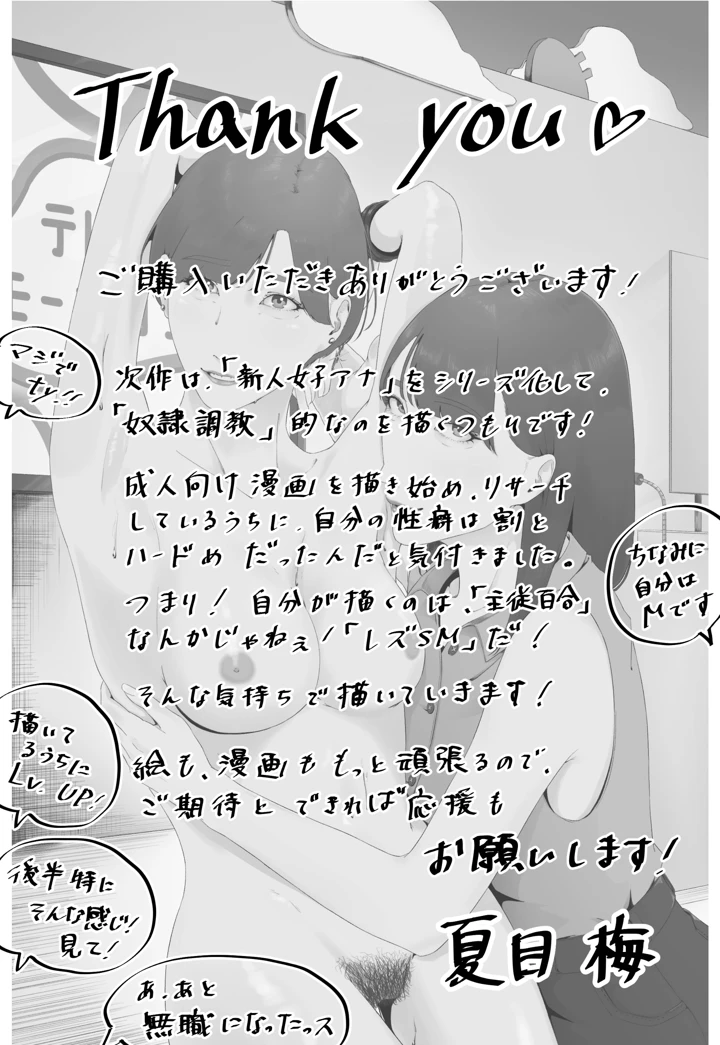 Thank you♡
ご購入いただきありがとうございます!
マジで
tv.!!
次作は、「新人女子アナ」をシリーズ化して、
「奴隷調教」的なのを描くつもりです!
成人向け漫画を描き始め、リサーチ
しているうちに、自分の性癖は割と
ハードめだったんだと気付きました。
ちなみに
自分は
Mです
つまり!自分が描くのは、「主従百合」
なんかじゃねぇ!「レズSM」だ!
そんな気持ちで描いていきます!
描いて
るうちに
Lv. UP!
絵も、漫画ももっと頑張るので、
ご期待とできれば応援も
お願いします!
後半特に
そんな感じ!
見て!
夏目 梅
あ、あと
無職になったっス
テレ
モー